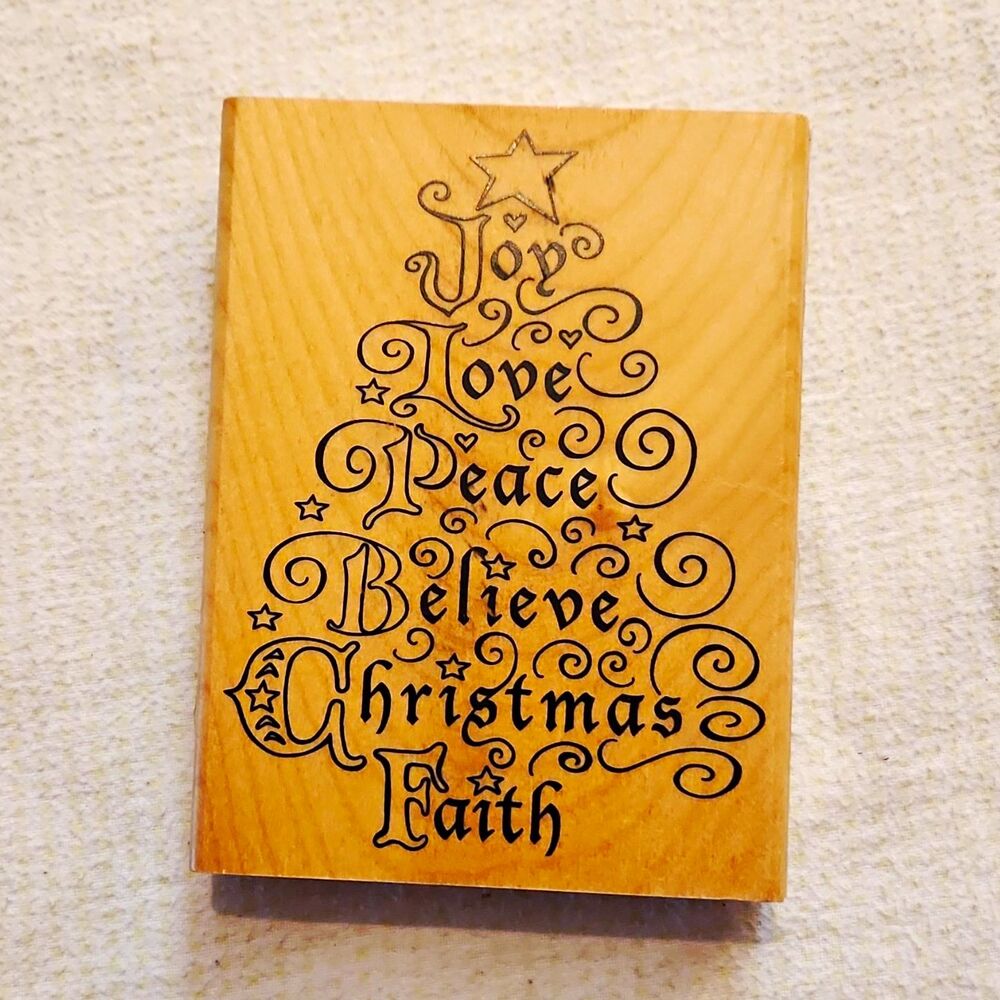 Joy
Love
Peace
Believe
Christmas
Faith